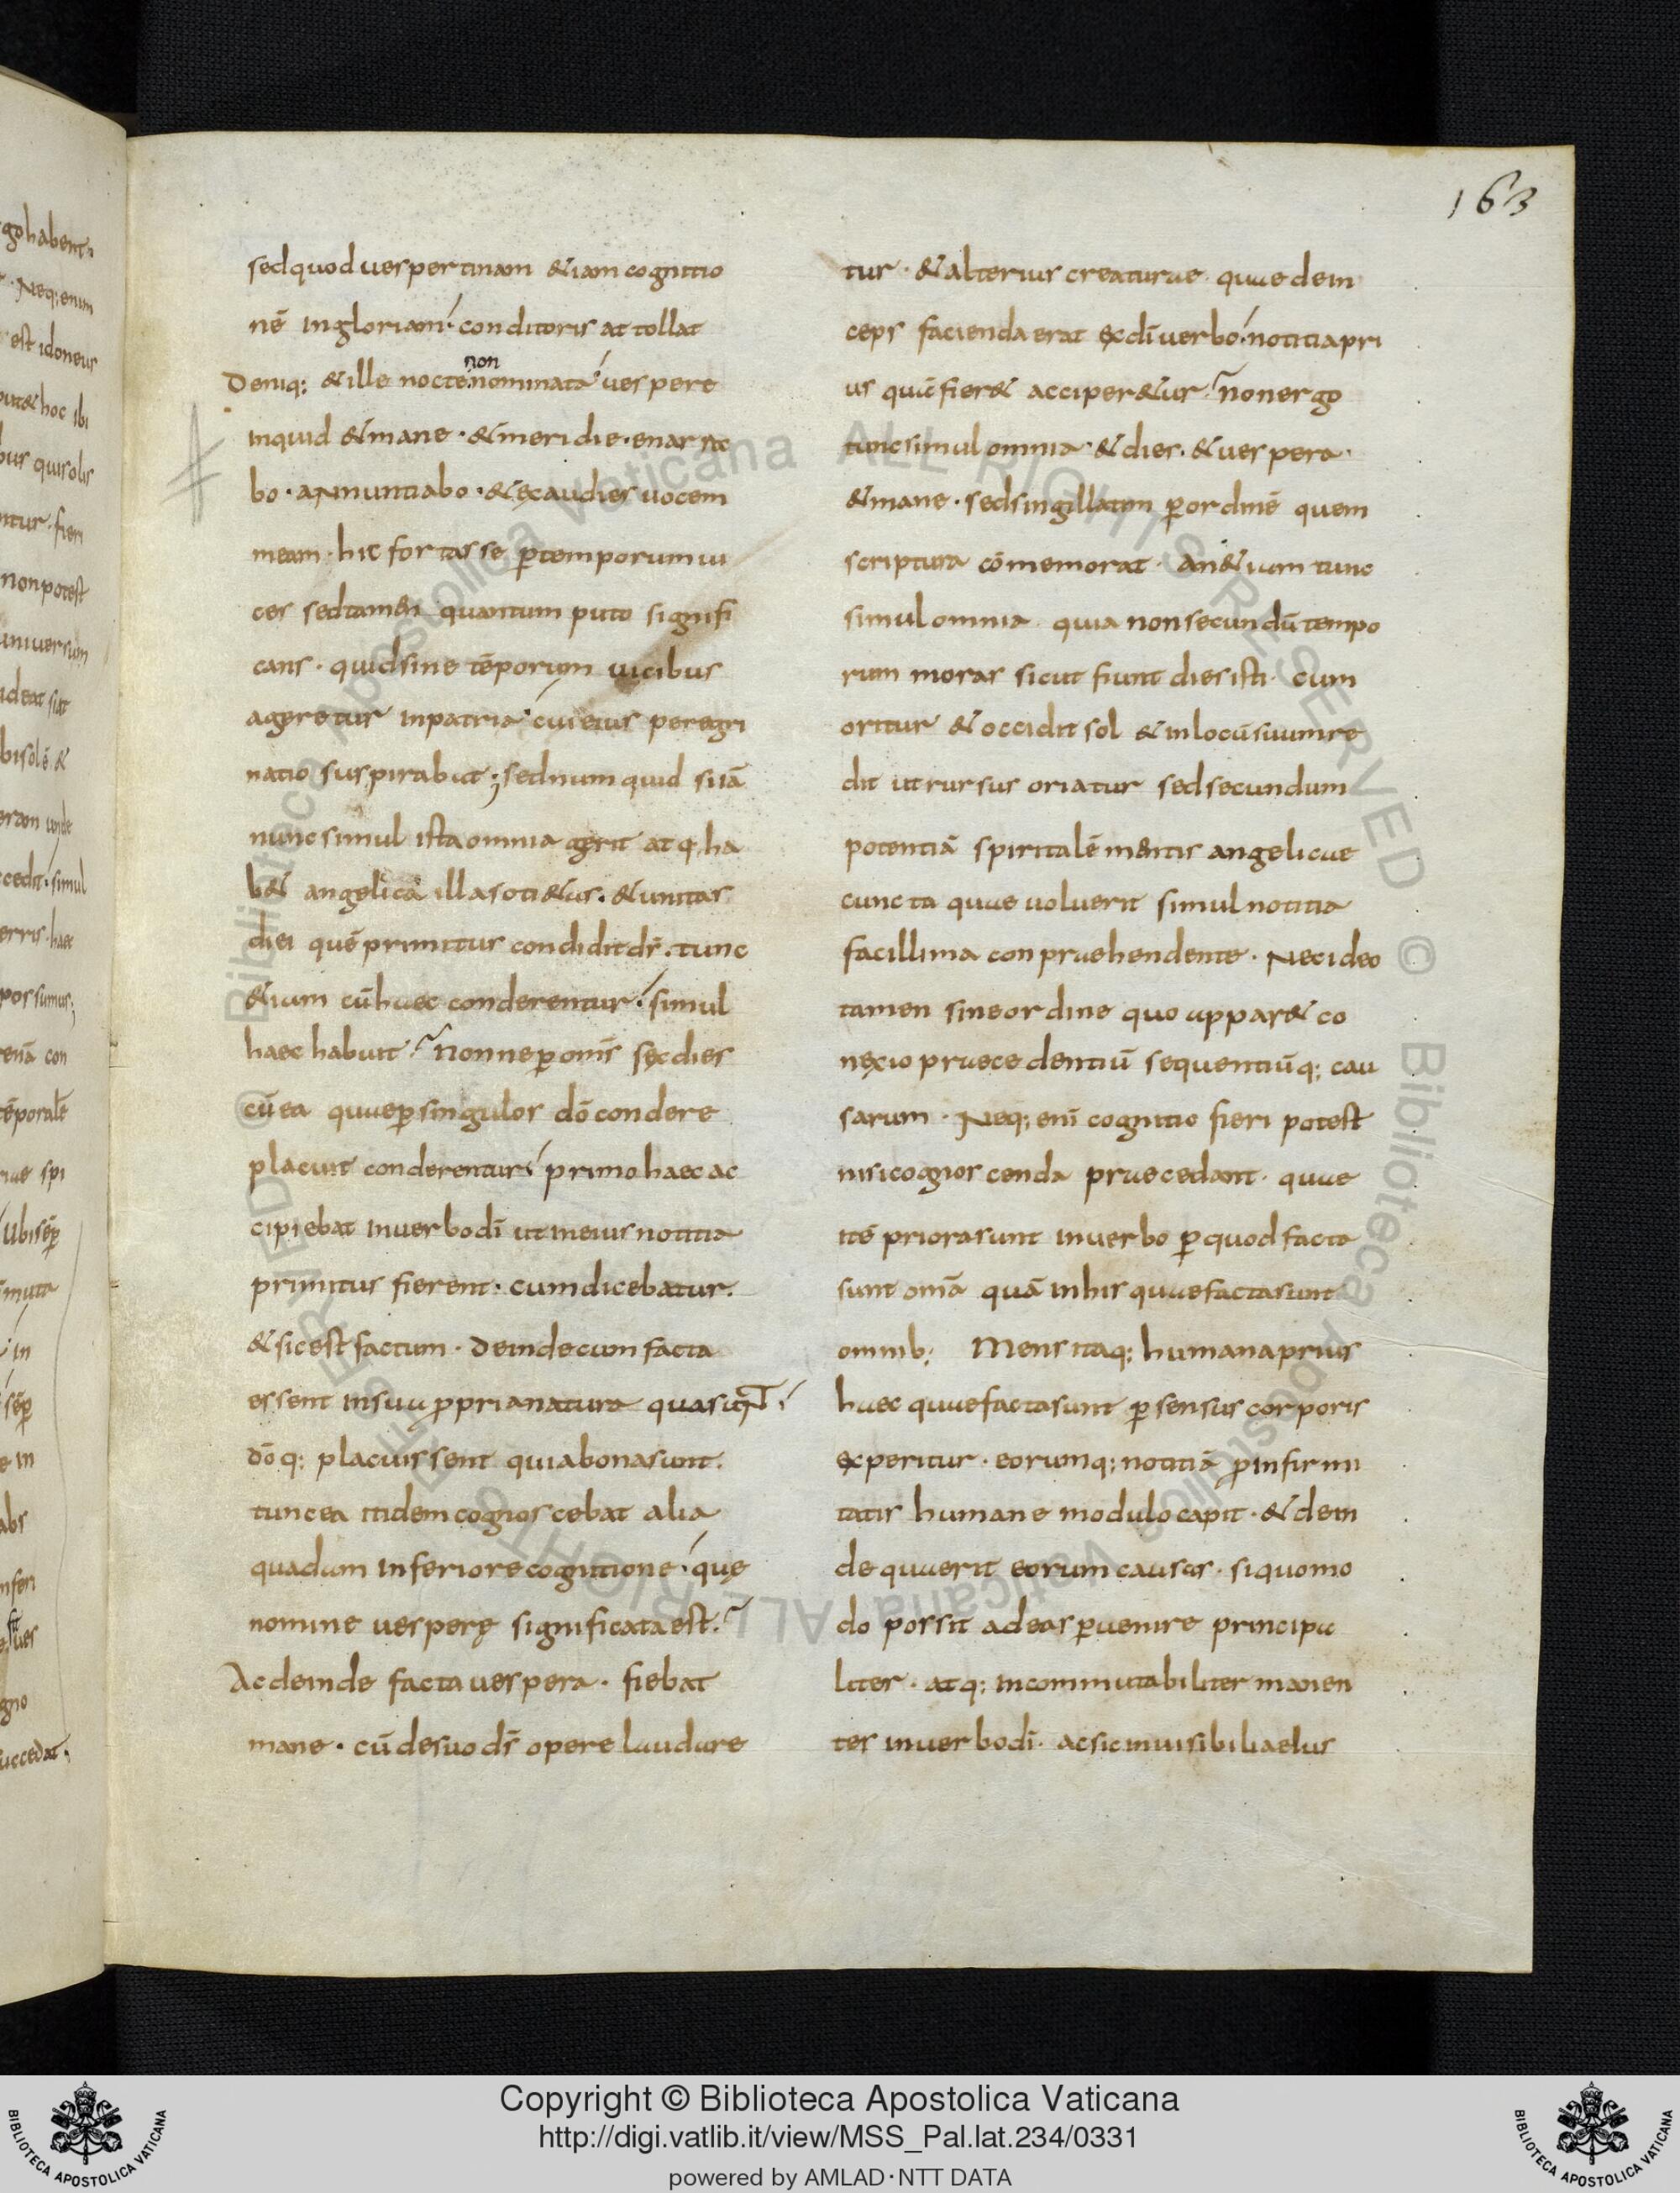 163
sed quod uespertinam &iam cognitio
nē in gloriam conditoris attollat
Deniq; & ille nocte non nominata uespere
inquid & mane · & meridie · enarra
bo · adnuntiabo · & exaudies uocem
meam · hic fortasse p temporum ui
ces sed tamen quantum puto signifi
cans · quid sine tēporum uicibus
ageretur in patria cui eius peregri
natio suspirabat ; sed numquid suā
nunc simul ista omnia agerit atq; ha
b& angelica illa soti&as · & unitas
diei quē primitus condidit ds̄ · tunc
&iam cū haec conderentur simul
haec habuit Nonne p om̄s sex dies
cū ea quae p singulos dō condere
placuit conderentur primo haec ac
cipiebat in uerbo dī ut in eius notitia
primitus fierent · cum dicebatur ·
& sic est factum · Deinde cum facta
essent in sua propria natura qua sunt
dōq; placuissent quia bona sunt ·
tunc ea itidem cognoscebat alia
quadam inferiore cognitione quę
nomine uesperę significata est ·
Ac deinde facta uespera · fiebat
mane · cū de suo ds̄ opere laudare
tur · & alterius creaturae quae dein
ceps facienda erat ex dī uerbo notitia pri
us quā fier& acciper&ur Non ergo
tunc simul omnia & dies · & uespera ·
& mane · sed singillatim p ordinē quem
scriptura cōmemorat · An &iam tunc
simul omnia quia non secundū tempo
rum moras sicut fiunt dies isti · Cum
oritur & occidit sol & in locū suum re
dit ut rursus oriatur sed secundum
potentiā spiritalē mentis angelicae
cuncta quae uoluerit simul notitia
facillima conpraehendente · Nec ideo
tamen sine ordine quo appar& co
nexio praecedentiū sequentiūq; cau
sarum · Neq; eni cognitio fieri potest
nisi cognoscenda praecedant · quae
itē priora sunt in uerbo p quod facta
sunt omā quā in his quae facta sunt
omnib; Mens itaq; humana prius
haec quae facta sunt p sensus corporis
experitur · eorumq; notitiā p infirmi
tatis humane modulo capit · & dein
de quaerit eorum causas · si quomo
do possit ad eas puenire principa
liter · atq; incommutabiliter manen
tes in uerbo dī · ac sic inuisibilia eius
Copyright © Biblioteca Apostolica Vaticana
http://digi.vatlib.it/view/MSS_Pal.lat.234/0331
powered by AMLAD·NTT DATA
BIBLIOTECA APOSTOLICA VATICANA
BIBLIOTECA APOSTOLICA VATICANA